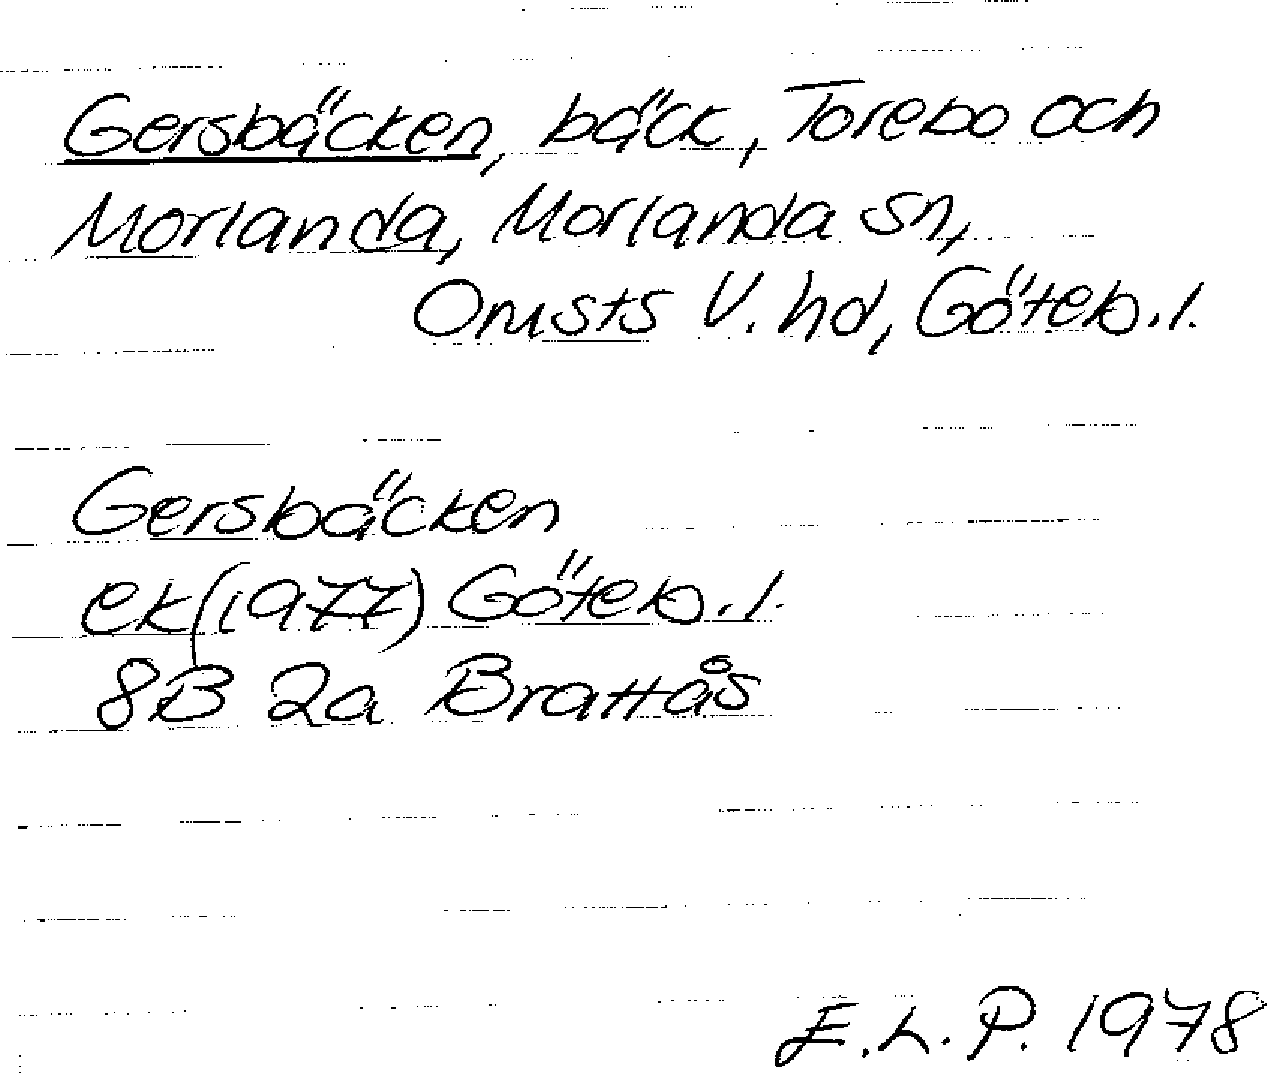 Gersbäcken, bäck, Torebo och
Morlanda, Morlanda sn,
Orusts V. hd, Göteb.l.
Gersbäcken
ek(1977) Göteb.l.
8B 2a Brattås
E.L.P. 1978